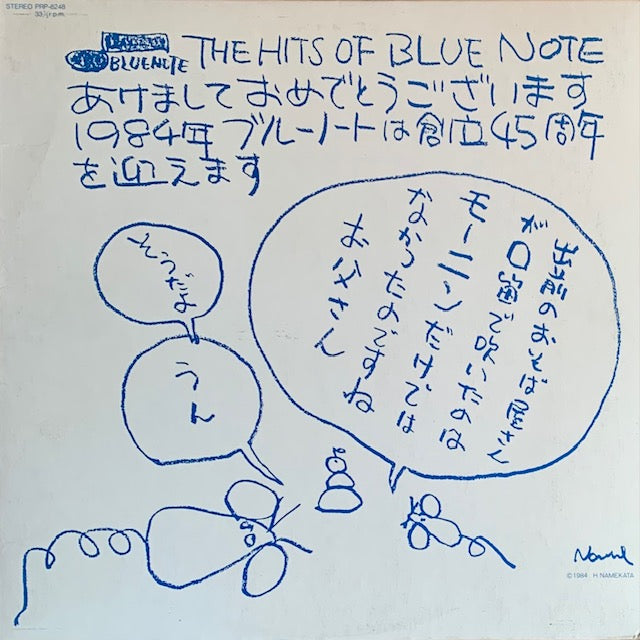 STEREO PRP-8248
33⅓r.p.m.
BLUE NOTE
THE HITS OF BLUE NOTE
あけましておめでとうございます
1984年 ブルーノートは創立45周年
を迎えます
出前のおそば屋さん
が口笛で吹いたのは
モーニンだけでは
なかったのですね
お父さん
そうだよ
うん
©1984 H NAMEKATA